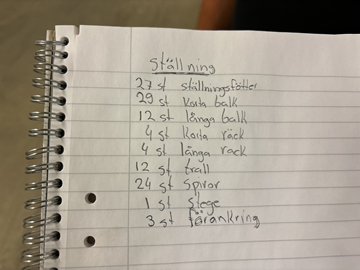 Ställning
27 st ställningsfötter
29 st korta balk
12 st långa balk
4 st korta räck
4 st långa räck
12 st trall
24 st spiror
1 st stege
3 st förankring